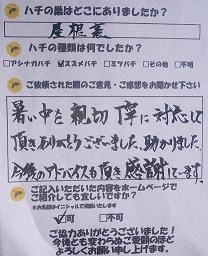 ハチの巣はどこにありましたか?
屋根裏
ハチの種類は何でしたか?
□アシナガバチ ☑スズメバチ □ミツバチ □その他 □不明
ご依頼された際のご意見・ご感想をお聞かせ下さい
暑い中を親切丁寧に対応して
頂きありがとうございました、助かりました。
今後のアドバイスも頂き感謝しています。
ご記入いただいた内容をホームページで
ご紹介しても宜しいですか?
※お名前はイニシャルで掲載いたします
☑可 □不可
ご協力ありがとうございました!
今後とも変わらぬご愛顧のほど
よろしくお願い申し上げます。